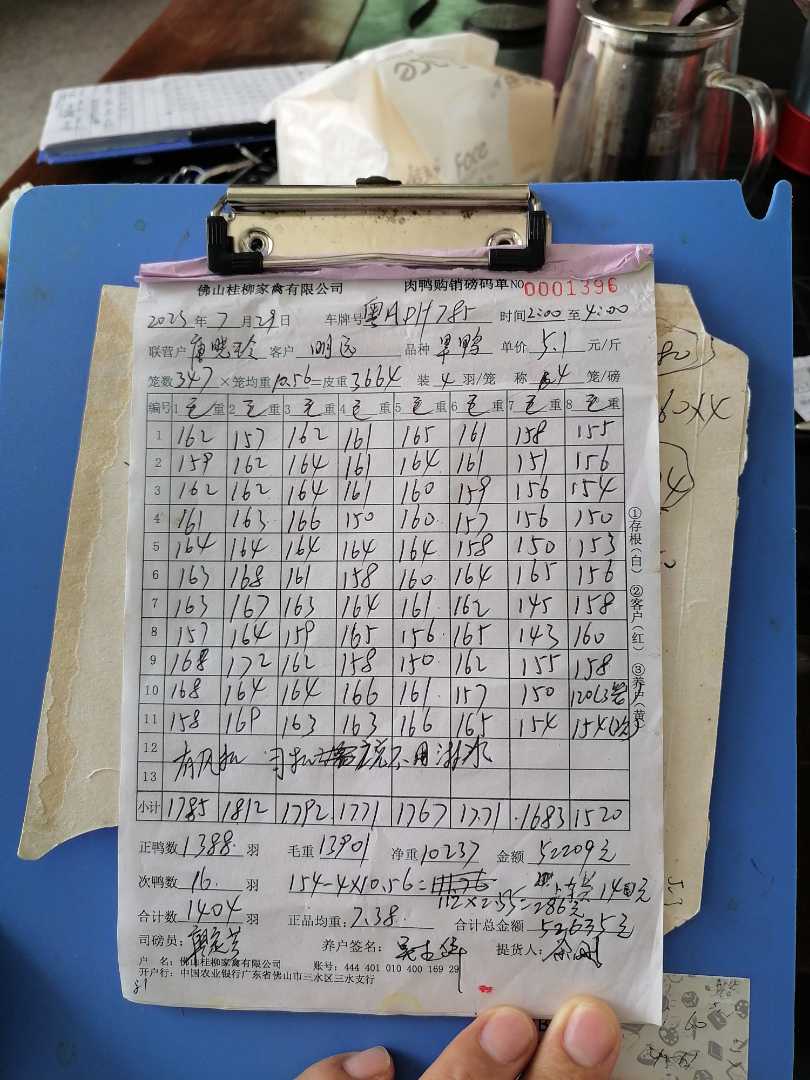 佛山桂柳家禽有限公司 肉鸭购销磅码单 NO 0001396
2025年7月29日 车牌号 粤A DH785 时间2:00至4:00
联营户 客户 明远 品种 单价 5.1 元/斤
笼数347×笼均重10.56=皮重3664 装4羽/笼 称4笼/磅
编号 1毛重 2毛重 3毛重 4毛重 5毛重 6毛重 7毛重 8毛重
1 162 157 162 161 165 161 158 155
2 159 162 164 161 164 161 151 156
3 162 162 164 161 160 159 156 154
4 161 163 166 150 160 157 156 150
5 164 164 164 164 164 158 150 153
6 163 168 161 158 160 164 165 156
7 163 167 163 164 161 162 145 158
8 157 164 159 165 156 165 143 160
9 168 172 162 158 150 162 155 158
10 168 164 164 166 161 157 150 120(3笼
11 158 169 163 163 166 165 154 154(次)
12
有风机 司机 不用淋水
13
小计 1785 1812 1792 1771 1767 1771 1683 1520
正鸭数1388羽 毛重13901 净重10237 金额52209元
次鸭数16羽 154-4×10.56= 140元
112×2.55=286元
合计数1404羽 正品均重:7.38 合计总金额52635元
司磅员: 养户签名: 提货人:
户 名:佛山桂柳家禽有限公司 账号:444 401 010 400 169 29
开户行:中国农业银行广东省佛山市三水区三水支行
①存根(白) ②客户(红) ③养户(黄)